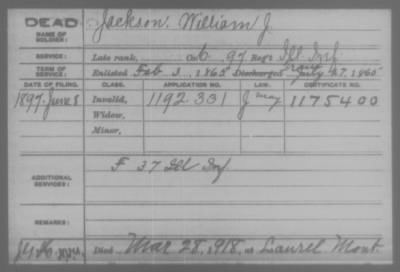 DEAD
NAME OF SOLDIER: Jackson William J.
SERVICE: Late rank, Co. 97 Reg't Ill Inf
TERM OF SERVICE: Enlisted Feb 3, 1865 Discharged July 27, 1865
DATE OF FILING. CLASS. APPLICATION NO. LAW. CERTIFICATE NO.
1897 June 8 Invalid, 1192.331 1175400
Widow,
Minor,
ADDITIONAL SERVICES: F 37 Ill Inf
REMARKS:
Died Mar 28, 1918, at Laurel Mont